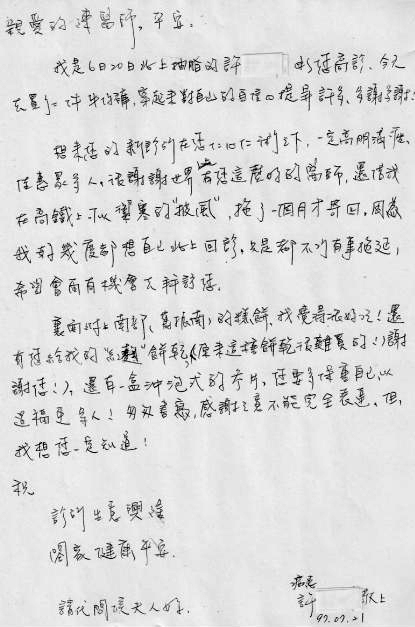 親愛的連醫師，平安：
我是6月20日北上抽脂的許 的 高診、今天
去買了一件牛仔褲，穿起來對自己的自信心提昇許多、多謝多謝！
想來您的新診所在您仁心仁術之下，一定高朋滿座、
佳惠眾人，很謝謝世界有您這麼好的醫師，還借我
在高鐵上可以禦寒的"披風"，拖了一個月才寄回，因為
我好幾度都想自己北上回診，只是都不巧有事拖延，
希望會有機會去拜訪您。
裏面附上南部(萬振南)的樣餅，我覺得很好吃！還
有您給我的 餅乾(原來這種餅乾很難買的！)謝
謝您！)，還有一盒沖泡式的 片，您要多保重自己，以
造福更多人！匆匆書寫，感謝之意不能完全表達，但，
我想您一定知道！
祝
診所生意興隆
闔家健康平安
請代問候夫人好.
病患
許 敬上
97.07.21